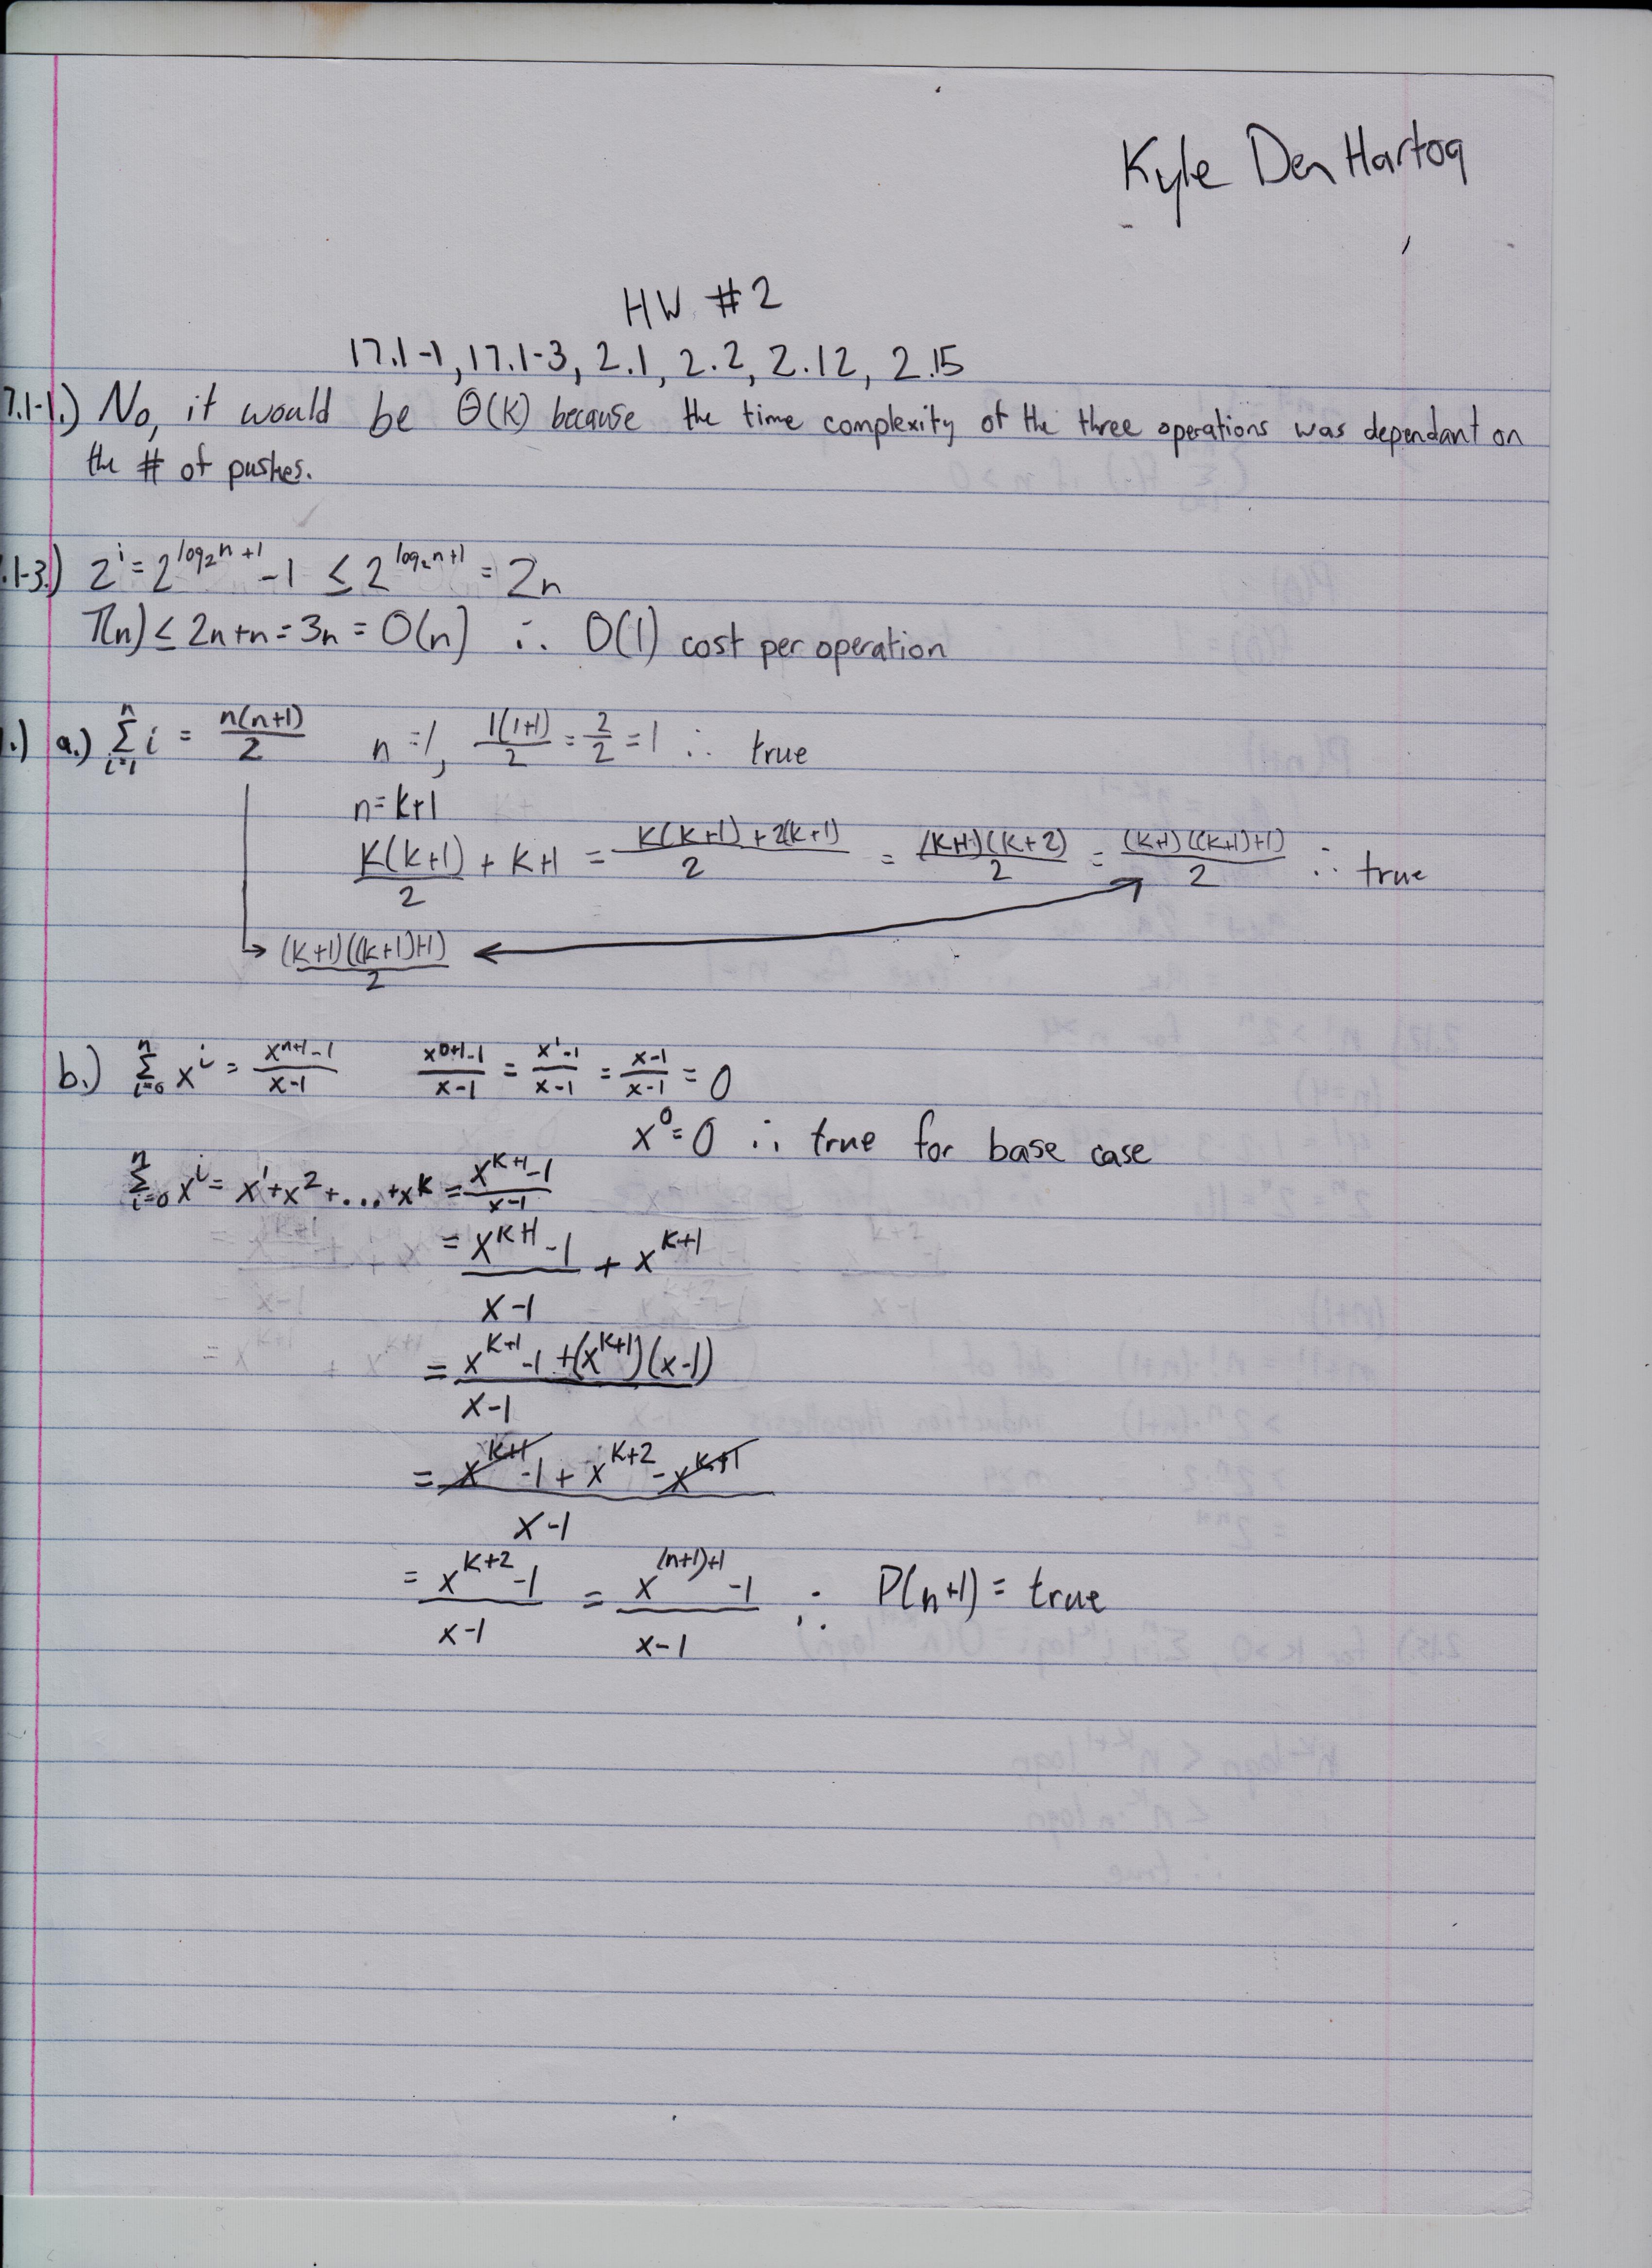 Kyle Den Hartog
HW #2
17.1-1, 17.1-3, 2.1, 2.2, 2.12, 2.15
7.1-1.) No, it would be Θ(K) because the time complexity of the three operations was dependant on
the # of pushes.
.1-3.) 2^i = 2^(log₂n+1) - 1 ≤ 2^(log₂n+1) = 2n
T(n) ≤ 2n+n = 3n = O(n) ∴ O(1) cost per operation
.) a.) Σ_{i=1}^{n} i = n(n+1)/2 n=1, 1(1+1)/2 = 2/2 = 1 ∴ true
n=k+1
K(k+1)/2 + k+1 = (K(k+1)+2(k+1))/2 = (k+1)(k+2)/2 = (k+1)((k+1)+1)/2 ∴ true
(k+1)((k+1)+1)/2
b.) Σ_{i=0}^{n} x^i = (x^(n+1)-1)/(x-1) (x^(0+1)-1)/(x-1) = (x^1-1)/(x-1) = (x-1)/(x-1) = 0
x^0 = 0 ∴ true for base case
Σ_{i=0}^{n} x^i = x^1+x^2+...+x^k = (x^(k+1)-1)/(x-1)
= (x^(k+1)-1)/(x-1) + x^(k+1)
= (x^(k+1)-1+(x^(k+1))(x-1))/(x-1)
= (x^(k+1)-1+x^(k+2)-x^(k+1))/(x-1)
= (x^(k+2)-1)/(x-1) = (x^((n+1)+1)-1)/(x-1) ∴ P(n+1) = true